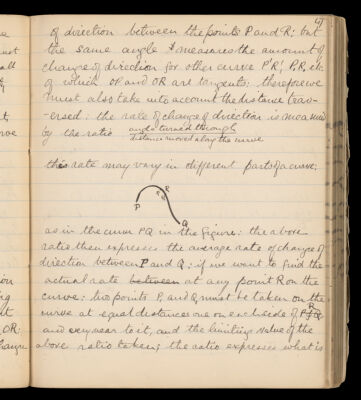 49
of direction between the points P and R; but
the same angle I measures the amount of
change of direction for other curves P'R', P,R, etc
of which OP and OR are tangents; therefore we
must also take into account the distance trav-
-ersed: the rate of change of direction is measured
by the ratio angle turned through
distance moved along the curve
this rate may vary in different parts of a curve;
P
R
Q
as in the curve PQ in the figure: the above
ratio then expresses the average rate of change of
direction between P and Q; if we want to find the
actual rate between at any point R on the
curve: two points P, and Q, must be taken on the
curve at equal distances one on each side of R
and very near to it, and the limiting value of the
above ratio taken; the ratio expresses what is